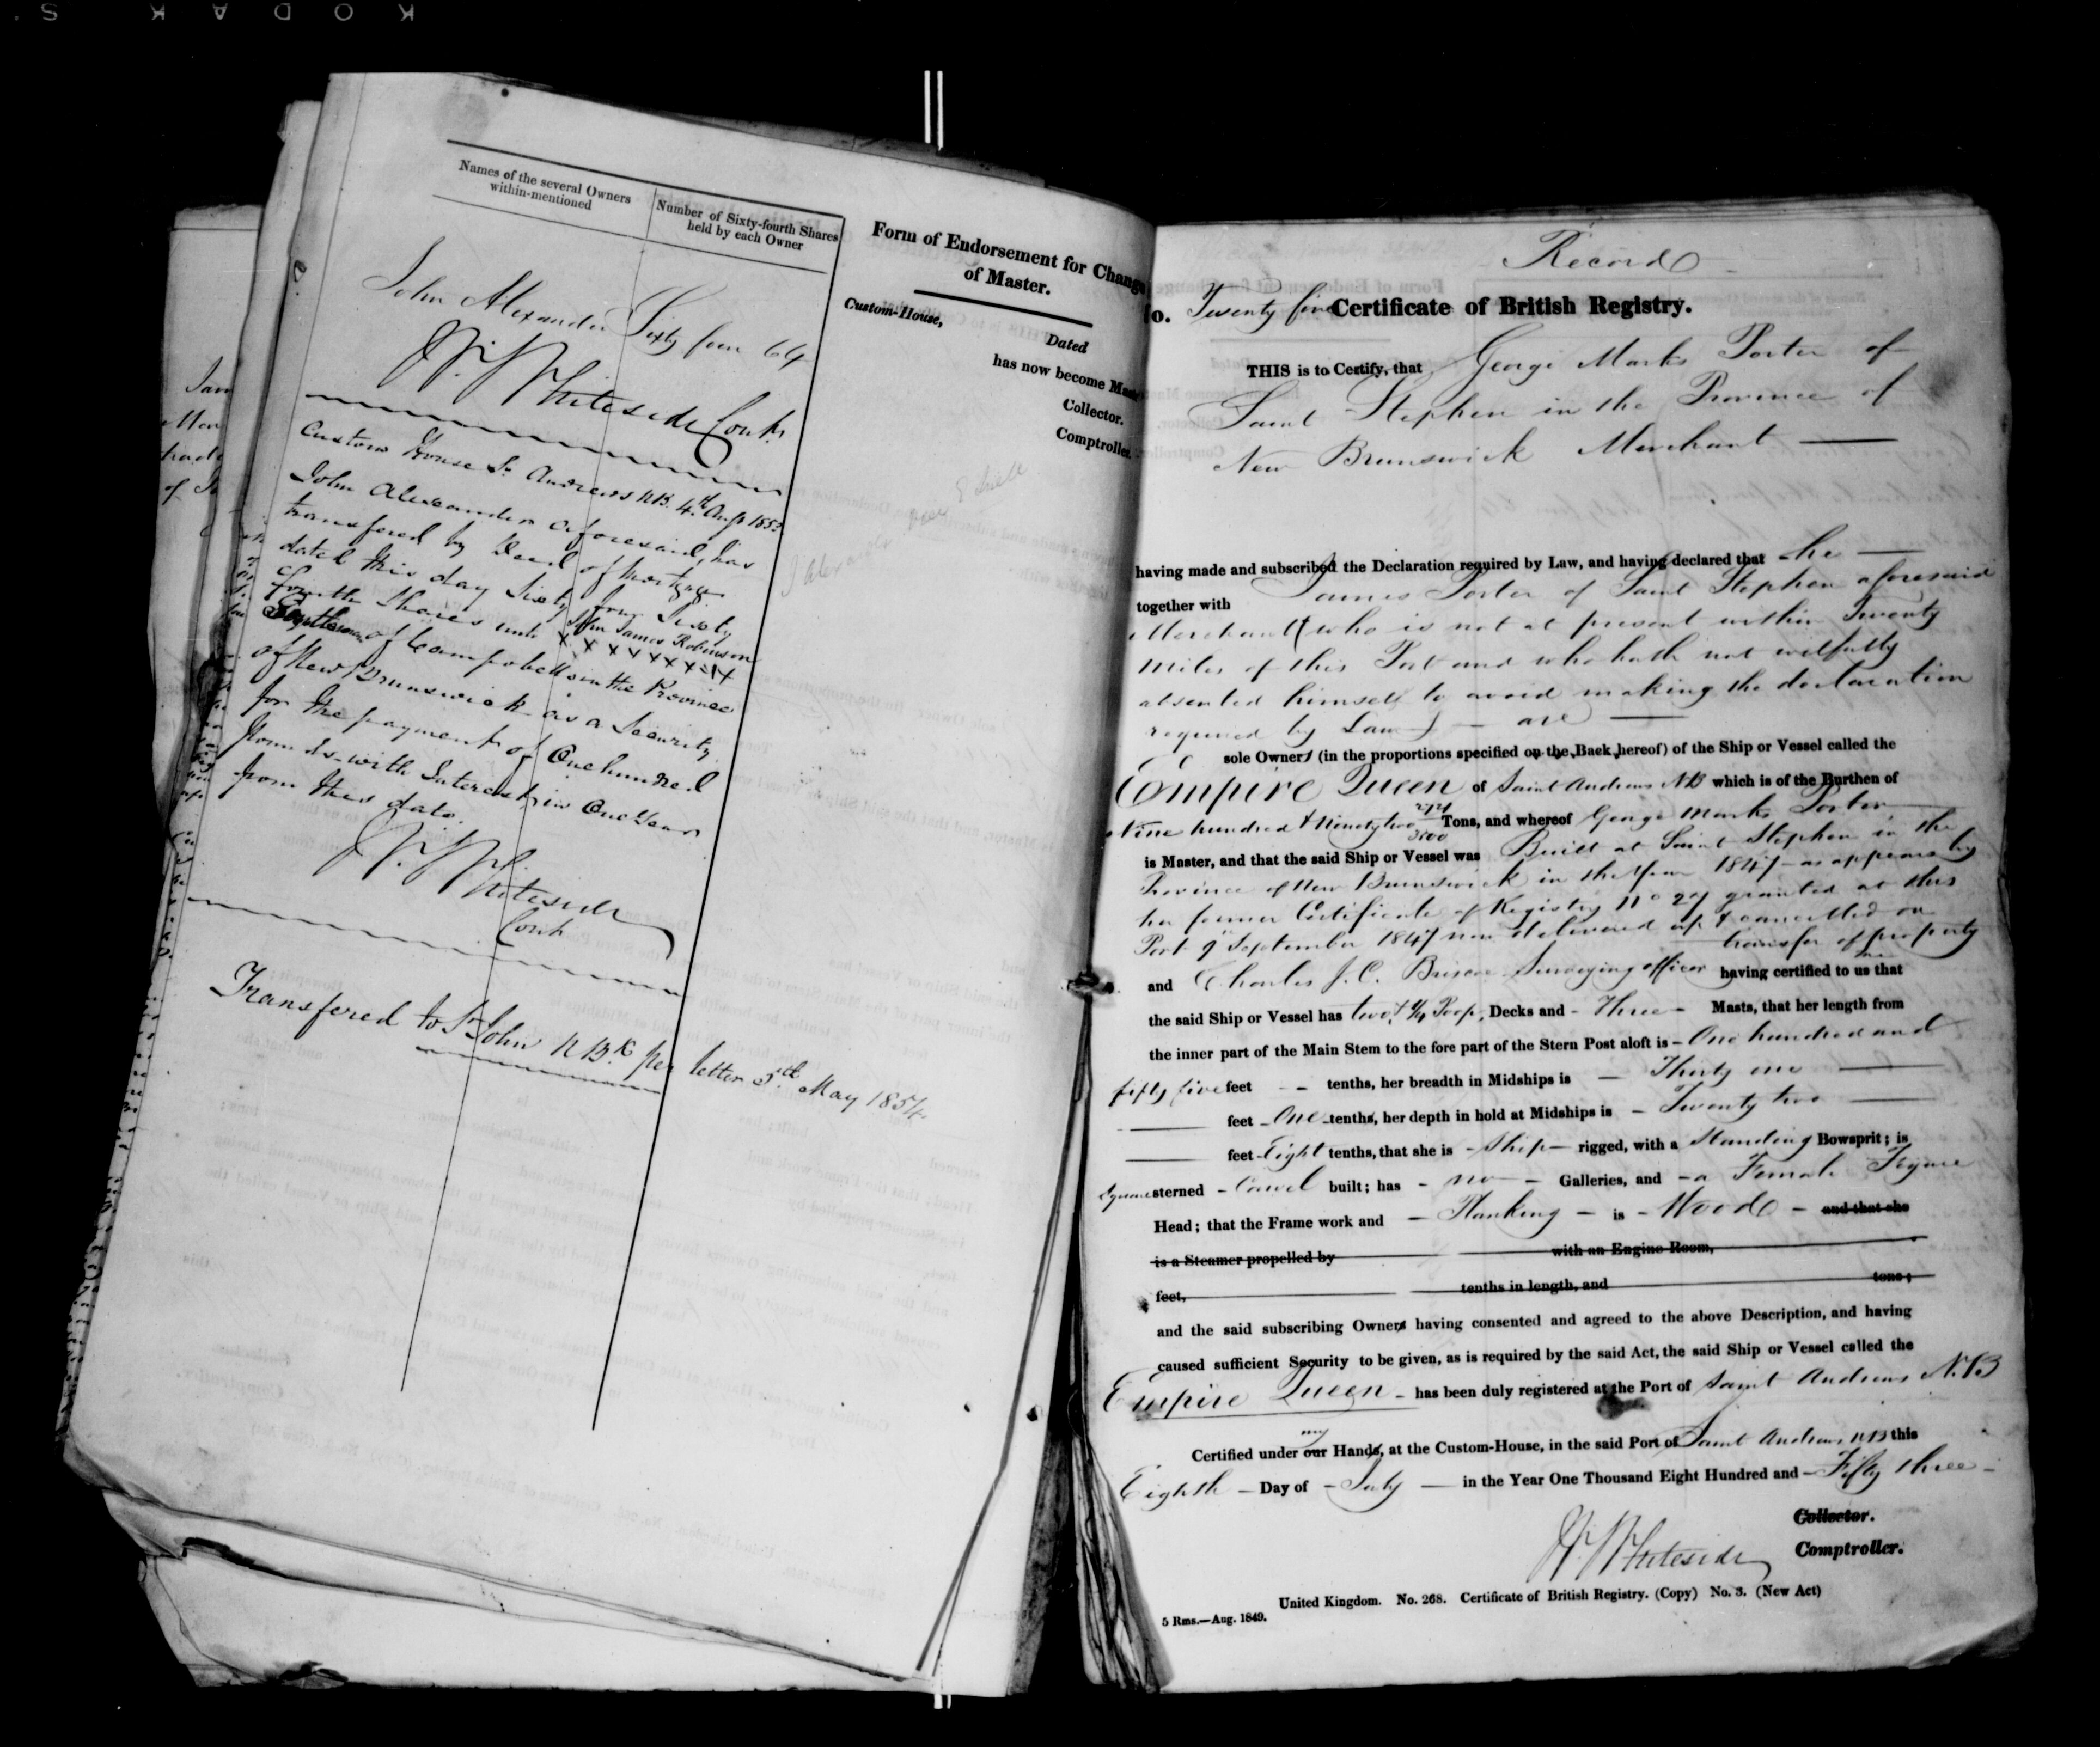 KODAK S.
Names of the several Owners
within-mentioned
Number of Sixty-fourth Shares
held by each Owner
John Alexander Sixty four 64
W. Whiteside Contr
Custom House St. Andrews N.B. 4th Augt 1853
John Alexander aforesaid, has
transfered by Deed of Mortgage
dated this day Sixty four Sixty
fourth Shares unto John James Robinson
x x x x x x x x
of Campobello in the Province
of New Brunswick as a Security
for the payment of One hundred
Pounds with Interest in One Year
from this date.
W. Whiteside
Contr
Transfered to St John N Bk per letter 5th May 1854
Form of Endorsement for Change
of Master.
Custom-House,
Dated
has now become Mast
Collector.
Comptroller.
Record
No. Twenty five Certificate of British Registry.
THIS is to Certify, that George Marks Porter of
Saint Stephen in the Province of
New Brunswick Merchant
having made and subscribed the Declaration required by Law, and having declared that he
together with James Porter of Saint Stephen aforesaid
Merchant (who is not at present within Twenty
Miles of this Port and who hath not wilfully
absented himself to avoid making the declaration
required by Law) are
sole Owners (in the proportions specified on the Back hereof) of the Ship or Vessel called the
Empire Queen of Saint Andrews NB which is of the Burthen of
Nine hundred & Ninety two Tons, and whereof George Marks Porter
is Master, and that the said Ship or Vessel was Built at Saint Stephen in the
Province of New Brunswick in the Year 1847 as appears by
her former Certificate of Registry No 27 granted at this
Port 9th September 1847 now delivered up & cancelled on
transfer of property
and Charles J. C. Briscoe Surveying officer having certified to me us that
the said Ship or Vessel has two & 1/4 Poop, Decks and - Three - Masts, that her length from
the inner part of the Main Stem to the fore part of the Stern Post aloft is - One hundred and
fifty five feet - - tenths, her breadth in Midships is - Thirty one
feet - One tenths, her depth in hold at Midships is - Twenty two
feet - Eight tenths, that she is - Ship - rigged, with a Standing Bowsprit; is
Square sterned - Carvel built; has - no - Galleries, and - a Female Figure
Head; that the Frame work and - Planking - is - Wood - and that she
is a Steamer propelled by with an Engine Room,
feet, tenths in length, and tons;
and the said subscribing Owners having consented and agreed to the above Description, and having
caused sufficient Security to be given, as is required by the said Act, the said Ship or Vessel called the
Empire Queen - has been duly registered at the Port of Saint Andrews N.B
Certified under my our Hands, at the Custom-House, in the said Port of Saint Andrews NB this
Eighth - Day of - July - in the Year One Thousand Eight Hundred and - Fifty three -
Collector.
W. Whiteside Comptroller.
United Kingdom. No. 268. Certificate of British Registry. (Copy) No. 3. (New Act)
5 Rms.—Aug. 1849.